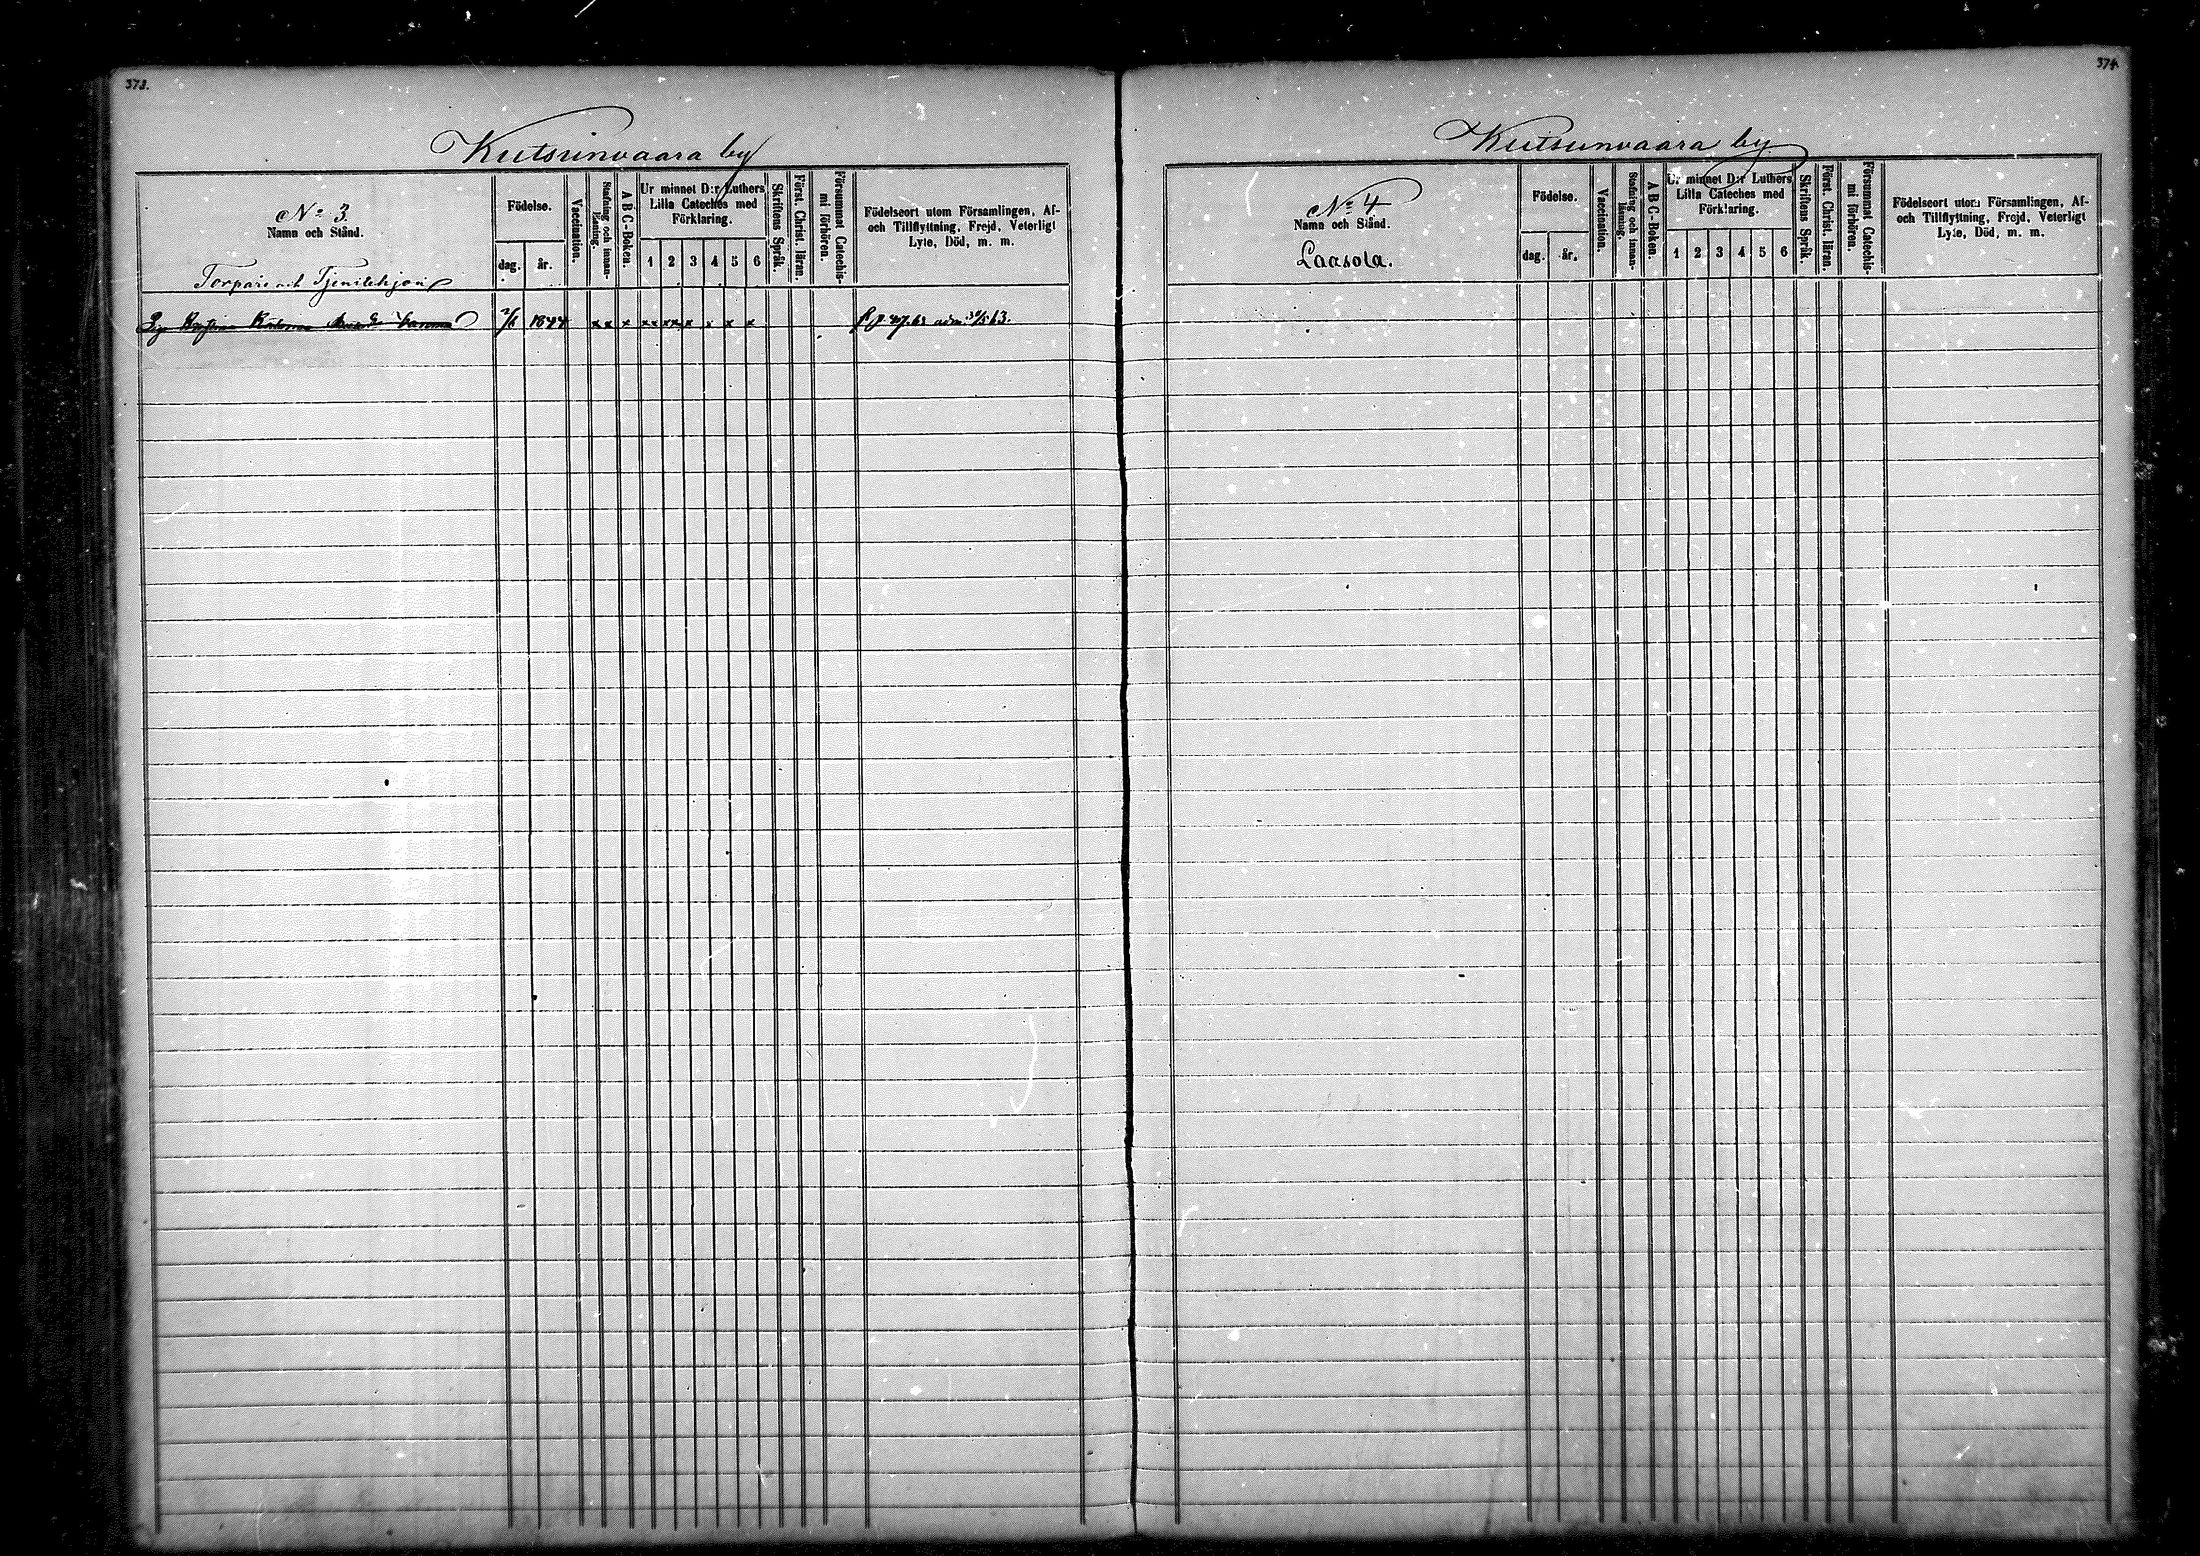 373.
Kutsunvaara by
No 3.
Namn och Stånd.
Torpare och Tjenstehjon
Födelse.
dag.
år.
Vaccination.
Stafning och innan-
läsning.
A B C-Boken.
Ur minnet D:r Luthers
Lilla Cateches med
Förklaring.
1 2 3 4 5 6
Skriftens Språk.
Först. Christ. läran.
Försummat Catechis-
mi förhören.
Födelseort utom Församlingen, Af-
och Tillflyttning, Frejd, Veterligt
Lyte, Död, m. m.
Katarina 1844 x x x x x x x x x x adm. 30/5 63.
374.
Kutsunvaara by
No 4
Namn och Stånd.
Laasola.
Födelse.
dag.
år.
Vaccination.
Stafning och innan-
läsning.
A B C-Boken.
Ur minnet D:r Luthers
Lilla Cateches med
Förklaring.
1 2 3 4 5 6
Skriftens Språk
Först. Christ. läran.
Försummat Catechis-
mi förhören.
Födelseort utom Församlingen, Af-
och Tillflyttning, Frejd, Veterligt
Lyte, Död, m. m.